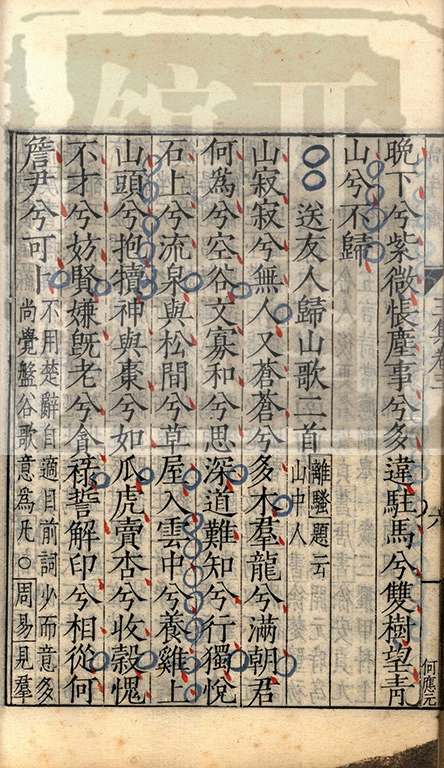 晚下兮紫微悵塵事兮多違駐馬兮雙樹望青
山兮不歸
送友人歸山歌二首
離騷題云
山中人
山寂寂兮無人又蒼蒼兮多木羣龍兮滿朝君
何為兮空谷文寡和兮思深道難知兮行獨悅
石上兮流泉與松間兮草屋入雲中兮養雞上
山頭兮抱犢神與棗兮如瓜虎賣杏兮收穀愧
不才兮妨賢嫌既老兮貪祿誓解印兮相從何
詹尹兮可卜
不用楚辭自適目前詞少而意多
尚覺盤谷歌意為凡○周易見羣
何應元